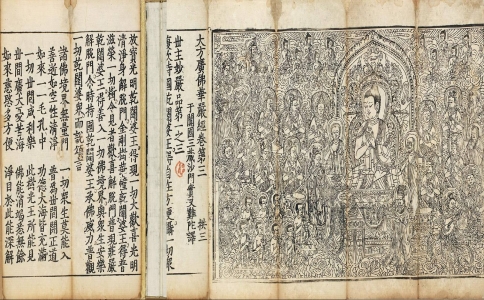 大方廣佛華嚴經卷第三
于闐國三藏沙門實叉難陀譯
世主妙嚴品第一之三
復次持國乾闥婆王得自在方便攝一切衆
放寶光明乾闥婆王得現一切大歡喜光明
清淨身解脫門金剛樹華幢乾闥婆王得普
滋榮一切樹令見者歡喜解脫門普現莊嚴
乾闥婆王得善入一切佛境界與衆生安樂
解脫門尒時持國乾闥婆王承佛威力普觀
一切乾闥婆衆而說頌言
諸佛境界無量門　一切衆生莫能入
善逝如空性清淨　普爲世間開正道
如來一一毛孔中　功德大海皆充滿
一切世間咸利樂　此樹光王所能見
世間廣大憂苦海　佛能消竭悉無餘
如來慈愍多方便　淨目於此能深解